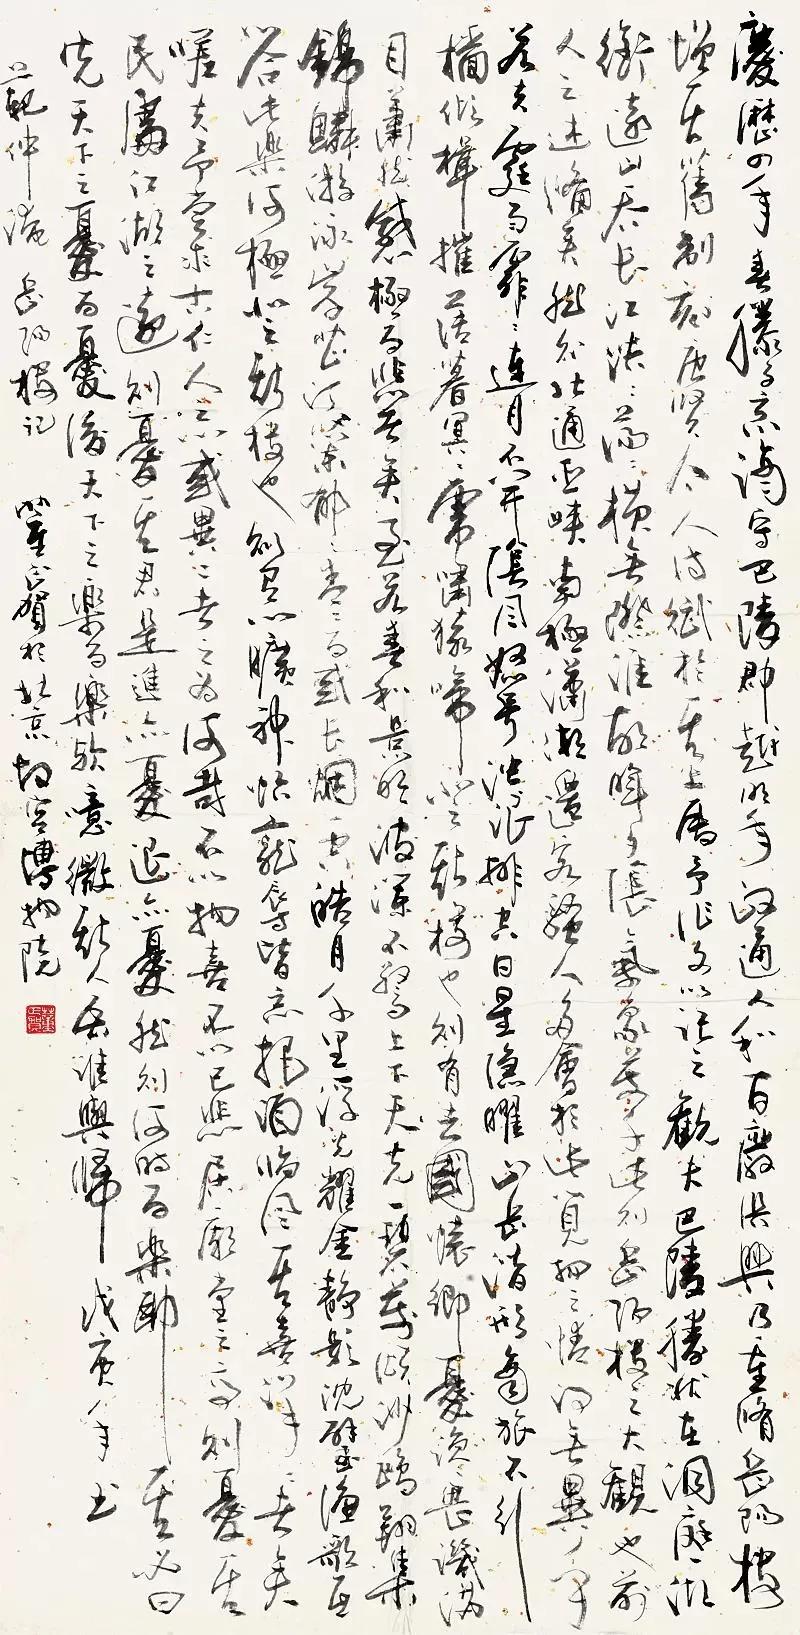 慶歷四年春滕子京謫守巴陵郡越明年政通人和百廢俱興乃重脩岳陽樓
增其舊制刻唐賢今人詩賦於其上屬予作文以記之觀夫巴陵勝狀在洞庭一湖
銜遠山吞長江浩〻蕩〻橫無際涯朝暉夕陰氣象萬千此則岳陽樓之大觀也前
人之述備矣然則北通巫峽南極瀟湘遷客騷人多會於此覽物之情得無異乎
若夫霪雨霏〻連月不開陰風怒號濁浪排空日星隱曜山岳潛形商旅不行
檣傾楫摧薄暮冥〻虎嘯猿啼登斯樓也則有去國懷鄉憂讒畏譏滿
目蕭然感極而悲者矣至若春和景明波瀾不驚上下天光一碧萬頃沙鷗翔集
錦鱗游泳岸芷汀蘭郁〻青〻而或長煙一空皓月千里浮光耀金靜影沈璧漁歌互
答此樂何極登斯樓也則有心曠神怡寵辱皆忘把酒臨風其喜洋〻者矣
嗟夫予嘗求古仁人之心或異二者之為何哉不以物喜不以己悲居廟堂之高則憂其
民處江湖之遠則憂其君是進亦憂退亦憂然則何時而樂耶其必曰
先天下之憂而憂後天下之樂而樂歟噫微斯人吾誰與歸 戊庚年書
范仲淹岳陽樓記 董正賀於北京故宮博物院
董正賀